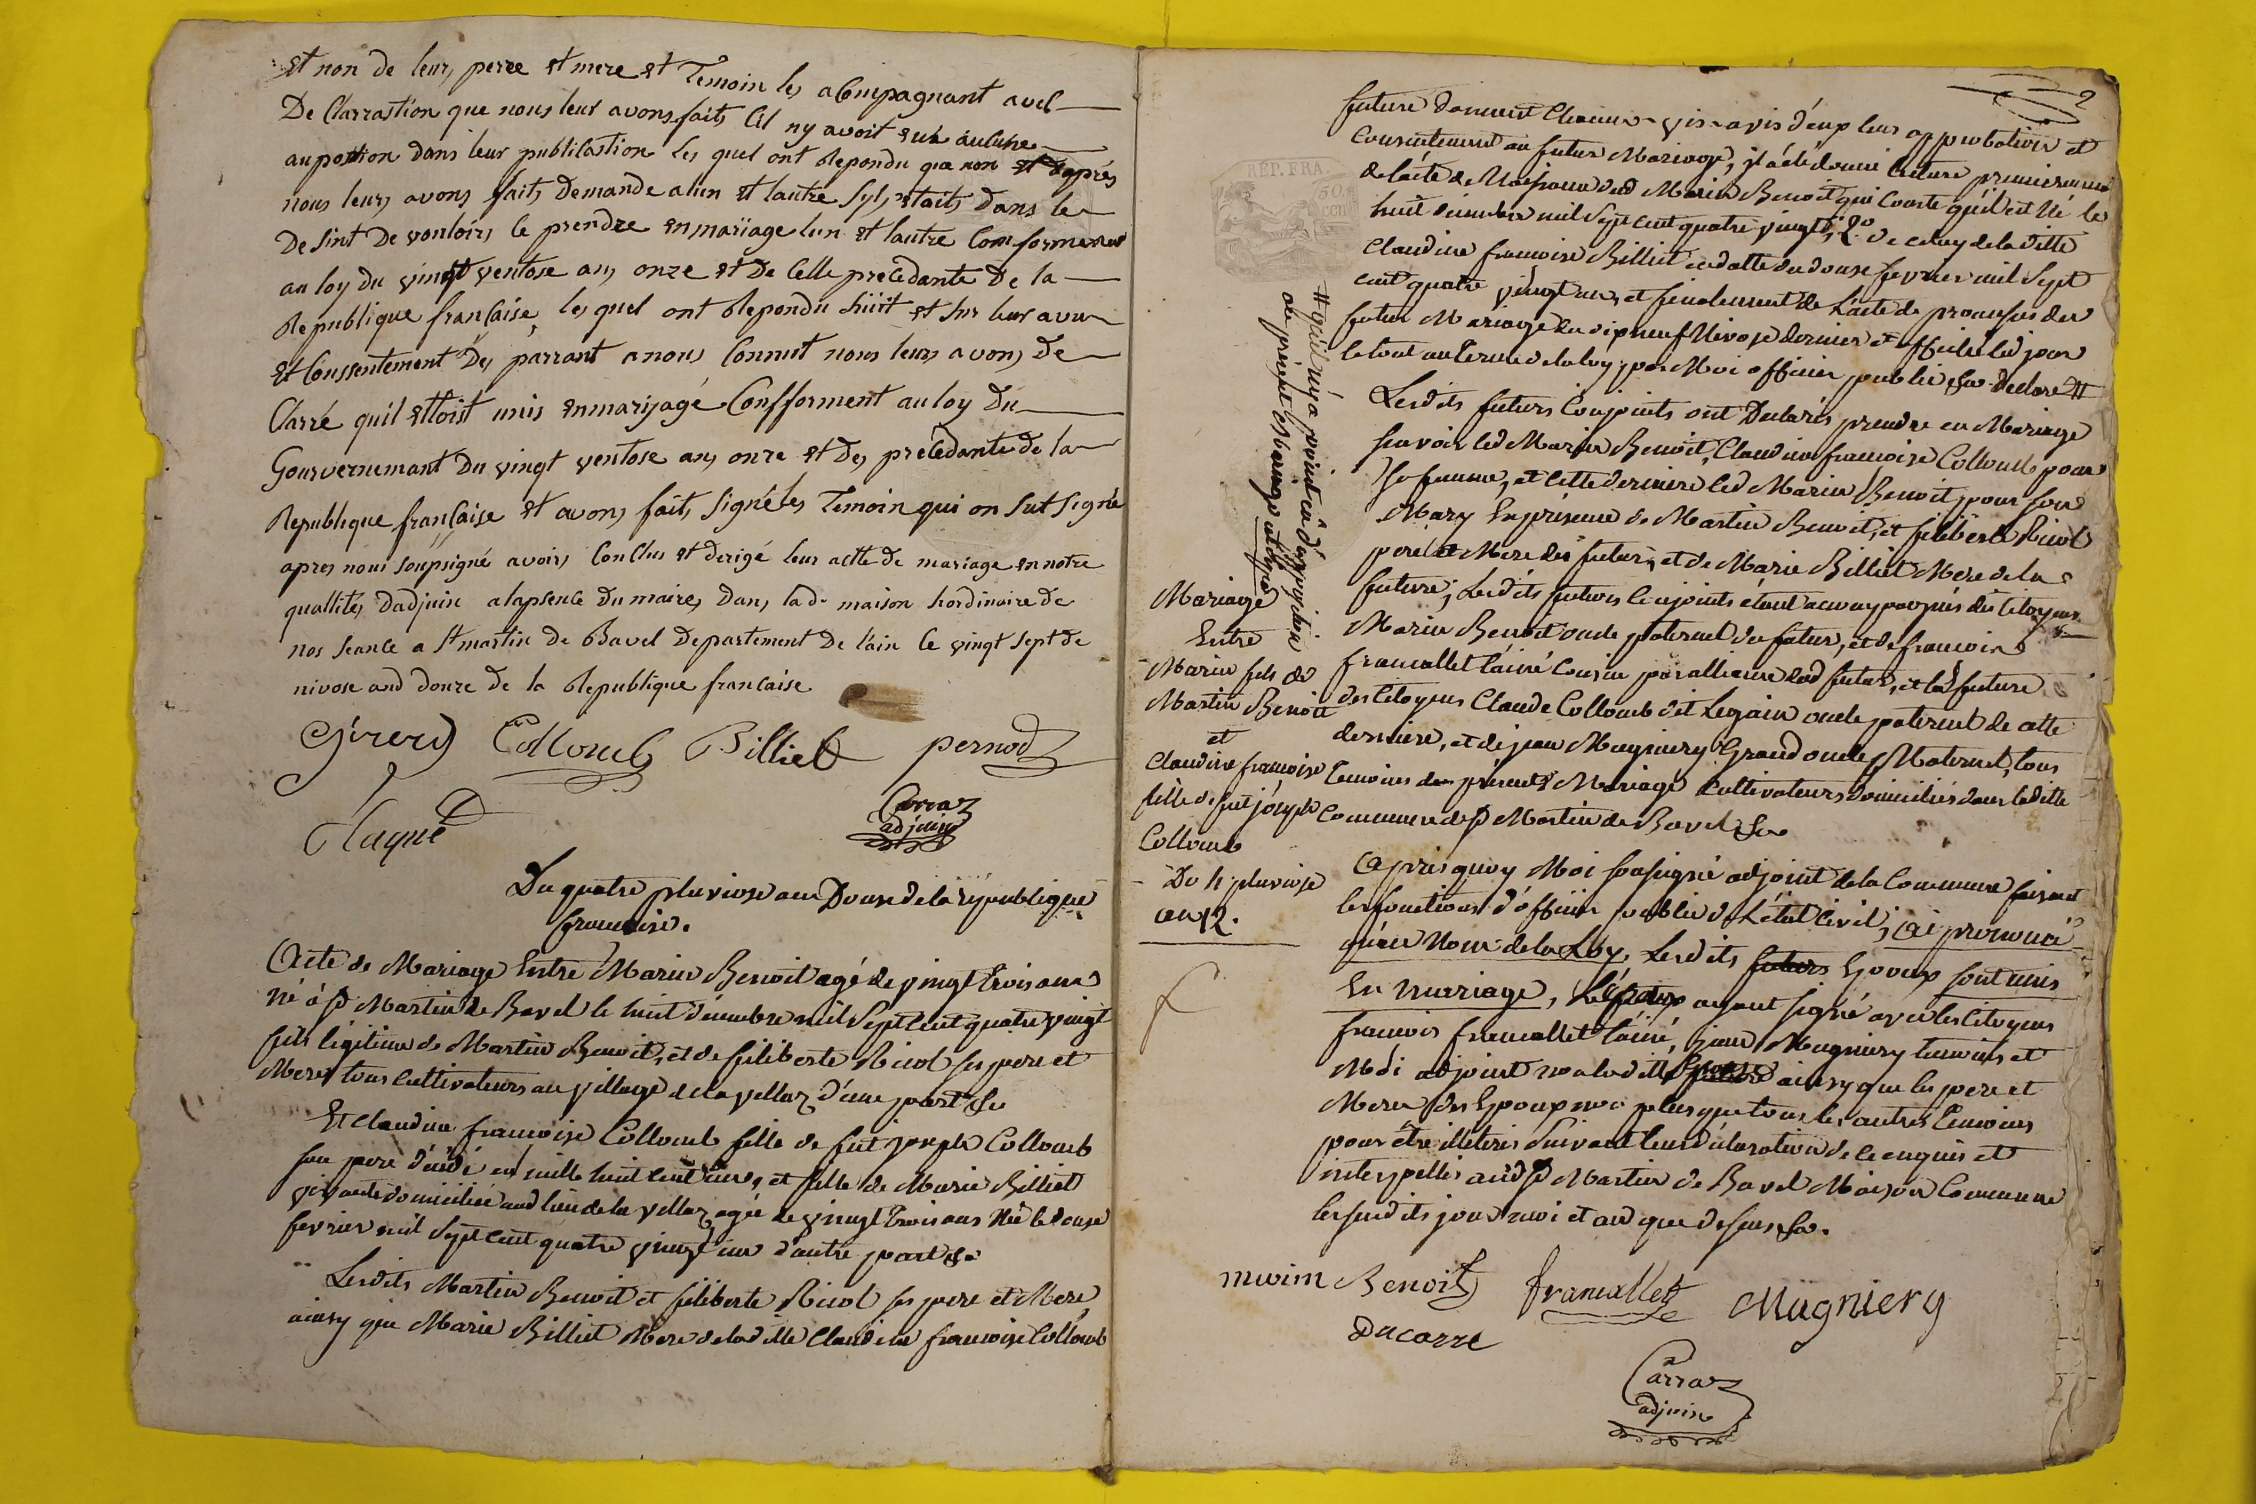 et non de leur, perre et mere et Temoin les acompagnant avel
De Clarrastion que nous leur avons faits Cil ny avoit eue aulune
aupottion dans leur publilastion les quel ont Repondu que non et dapres
nous leurs avons faits demande alun et lautre Syl, etaits dans le
De sint De vouloirs le prendre en mariage lun et lautre
au loy du vingt ventose an, onze et De Celle precedante De la
Republique francaise, les quel ont Repondu huit et sur leur aveu
et Conssentement Des parrant a nous Connut nous leurs avons De
Clarré quil ettoist unis en mariyagé Confforment au loy Du
Gourvernemant Du vingt ventose an, onze et Des précédante de la
Republique française et avons faits Signé les Temoin qui on Sut Signé
apres nous Soupsigné avoirs Conclus et derigé leur actte de mariage en notre
quallités Dadjuin alapsence Du maires Dans lade maison hordinaire de
nos seance a St martin de Bavel Departement De l'ain le vingt sept de
nivose and douze de la Republique francaise
Gérerd Collomb Billiet pernod
Claque
Carraz
adjoin
Du quatre pluviose an Douze de la republique
francaise.
Acte de Mariage Entre Marin Benoit agé de vingt trois ans
né à St Martin de Bavel le huit décembre mil Sept cent quatre vingt
fils légitime de Martin Benoit, et de filiberte Nicol ses pere et
Mere tous Cultivateurs au village de la vellaz d'une part &c
Et Claudine francoise Collomb fille de feut joseph Collomb
son pere décédé en mille huit cent une, et fille de Marie Billiet
vivante domiciliée aud lieu de la vellaz agée de vingt trois ans Née le douse
fevrier mil Sept cent quatre vingt un d'autre part &c
Lesdits Martin Benoit et filiberte Nicol ses pere et Mere
ainsy que Marie Billiet Mere de ladille Claudine francoise Collomb
2
REP. FRA.
future donnent Chacun vis avis d'eux leurs approbation et
Consentement au futur Mariage, il a été donné lecture premierement
de lacte de Naissance dud Marin Benoit qui Conste qu'il est Né le
huit décembre mil Sept cent quatre vingt, 2° de celuy de la ditte
Claudine francoise Billiet en datte du douse fevrier mil Sept
cent quatre vingt un, et finalement de L'acte de promesses du
futur Mariage du dixneuf Nivose dernier et affiché led jour
le tout au Terme de la loy, par Moi officier public &a declare #
# qu'il n'y a point eû d'opposition
au présent Mariage
Lesdits futurs Conjoints ont Declarés prendre en Mariage
savoir led Marin Benoit, Claudine francoise Collomb pour
sa femme, et cette derniere led Marin Benoit pour son
Mary En présence de Martin Benoit, et filiberte Nicol
pere et Mere des futur, et de Marie Billiet Mere de la
future, Lesdits futurs Conjoints étant accompagnés des Citoyens
Marin Benoit oncle paternel du futur, et de francois
francallet l'ainé Cousin par alliance dud futur, et la future
des Citoyens Claude Collomb dit Legain oncle paternel de cette
derniere, et de jean Mugniery Grand oncle Maternel, tous
temoins du présent Mariage Cultivateurs domiciliés dans ladite
Commune de St Martin de Bavel &a
Mariage
Entre
Marin fils de
Martin Benoit
et
Claudine francoise
fille de feut joseph
Collomb
Du 4 pluviose
an 12.
Apres quoy Moi Sousigné adjoint de la Commune faisant
les fonctions d'officier public de l'état Civil, ai prononcé
qu'au Nom de la Loy, Lesdits futurs Epoux sont unis
En Mariage, L'Epoux ayant signé avec les Citoyens
francois francallet l'ainé, jean Mugniery temoins et
Moi adjoint non ladite ainsy que les pere et
Mere des Epoux non plus que tous les autres temoins
pour être illeterés Suivant leur déclaration de ce enquis et
interpellés aud St Martin de Bavel Maison Commune
les susdits jour moi et an que desus &a.
marin Benoit francallet Mugniery
Ducarre
Carraz
adjoin